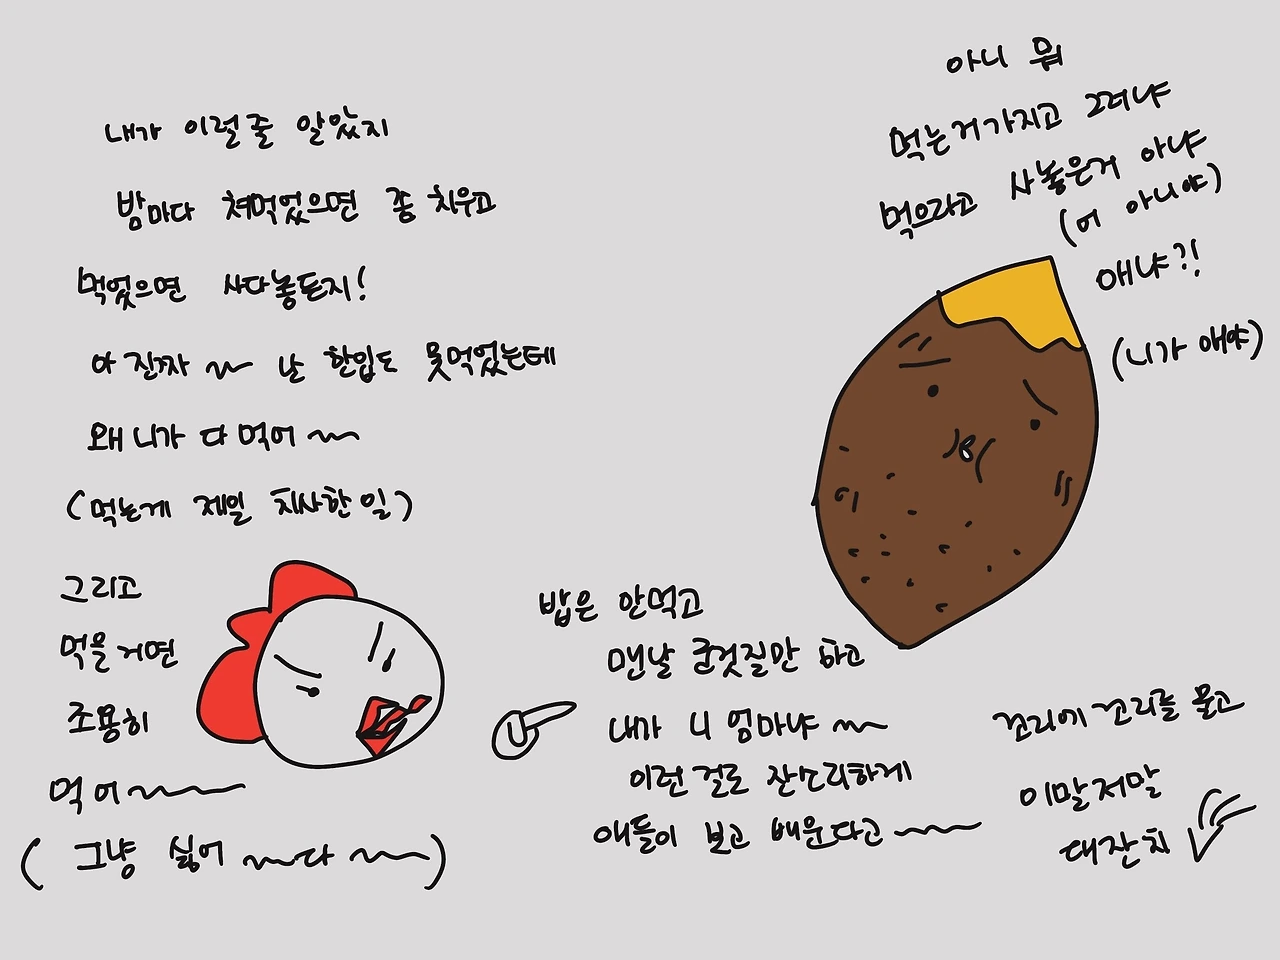 내가 이럴줄 알았지
밤마다 쳐먹었으면 좀 치우고
먹었으면 사다놓든지!
아 진짜~~ 난 한입도 못먹었는데
왜 니가 다 먹어~~
(먹는게 제일 치사한 일)
그리고
먹을거면
조용히
먹어~~~
(그냥 싫어~~다~~)
아니 뭐
먹는거가지고 그러냐
먹으라고 사놓은거 아냐
(어 아니야)
애냐?!
(니가 애야)
밥은 안먹고
맨날 군것질만 하고
내가 니 엄마냐~~
이런 걸로 잔소리하게
애들이 보고 배운다고~~~
꼬리에 꼬리를 물고
이말저말
대잔치